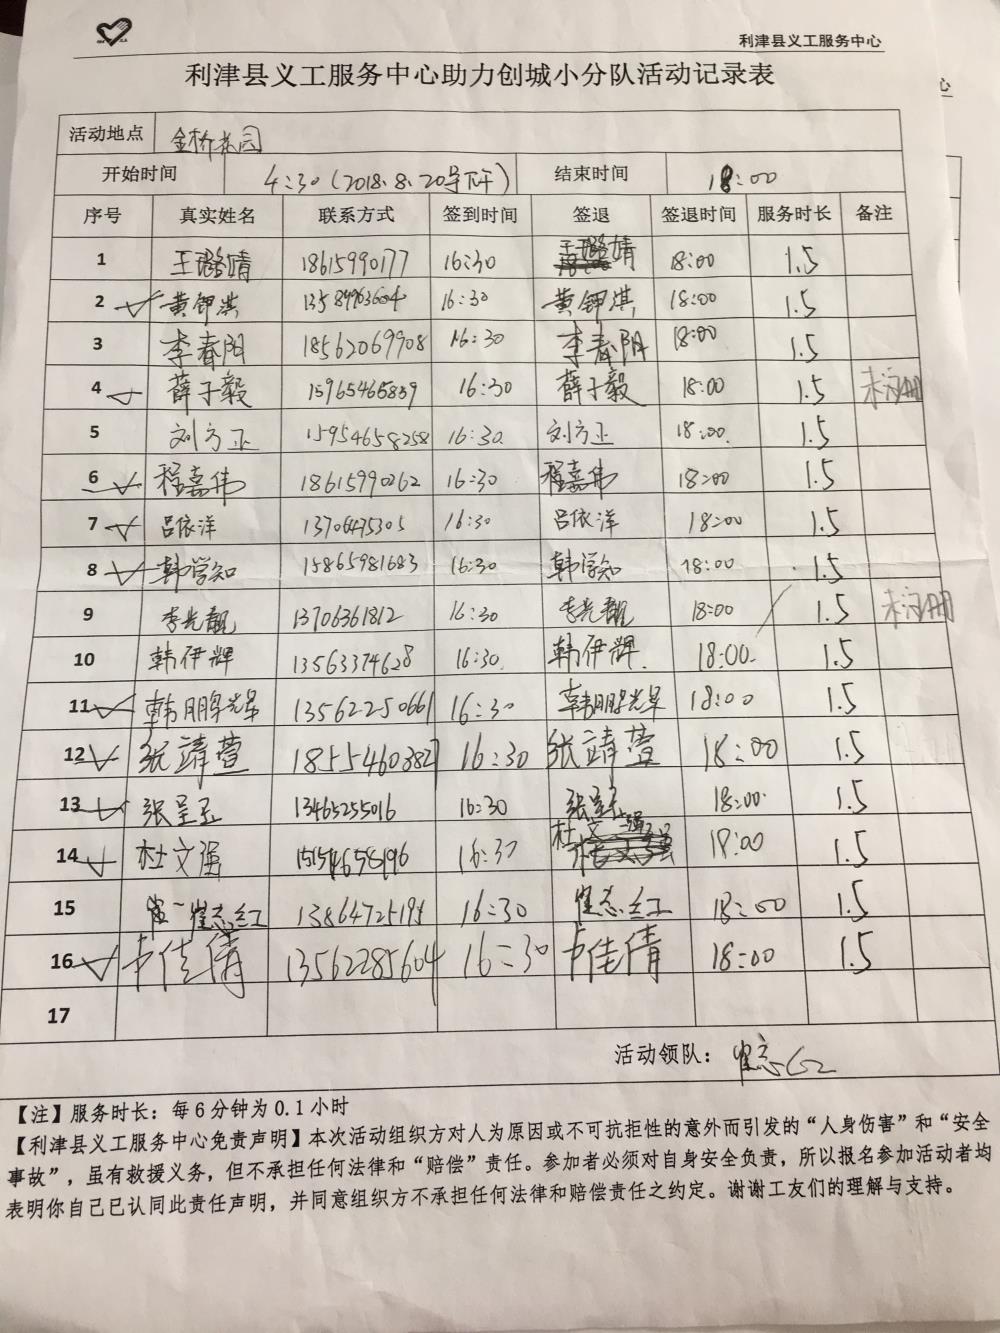 利津县义工服务中心
利津县义工服务中心助力创城小分队活动记录表
活动地点 金桥花园
开始时间 4:30(2018.8.20号下午) 结束时间 18:00
序号 真实姓名 联系方式 签到时间 签退 签退时间 服务时长 备注
1 王璐婧 18615990177 16:30 王璐婧 18:00 1.5
2 黄钾淇 13589963604 16:30 黄钾淇 18:00 1.5
3 李春阳 18562069908 16:30 李春阳 18:00 1.5
4 薛子毅 15965465839 16:30 薛子毅 18:00 1.5 未注册
5 刘方正 15954658258 16:30 刘方正 18:00 1.5
6 程嘉伟 18615990262 16:30 程嘉伟 18:00 1.5
7 吕依洋 13706475305 16:30 吕依洋 18:00 1.5
8 韩学知 15865981683 16:30 韩学知 18:00 1.5
9 李光靓 13706361812 16:30 李光靓 18:00 1.5 未注册
10 韩伊辉 13563374628 16:30 韩伊辉 18:00 1.5
11 韩鹏 13562250661 16:30 韩鹏 18:00 1.5
12 张靖萱 16:30 张靖萱 18:00 1.5
13 张呈玉 13465255016 16:30 张呈玉 18:00 1.5
14 杜文强 16:30 杜文强 18:00 1.5
15 崔志红 16:30 崔志红 18:00 1.5
16 卢佳倩 13562285604 16:30 卢佳倩 18:00 1.5
17
活动领队: 崔志红
【注】服务时长: 每6分钟为0.1小时
【利津县义工服务中心免责声明】本次活动组织方对人为原因或不可抗拒性的意外而引发的“人身伤害”和“安全
事故”，虽有救援义务，但不承担任何法律和“赔偿”责任。参加者必须对自身安全负责，所以报名参加活动者均
表明你自己已认同此责任声明，并同意组织方不承担任何法律和赔偿责任之约定。谢谢工友们的理解与支持。